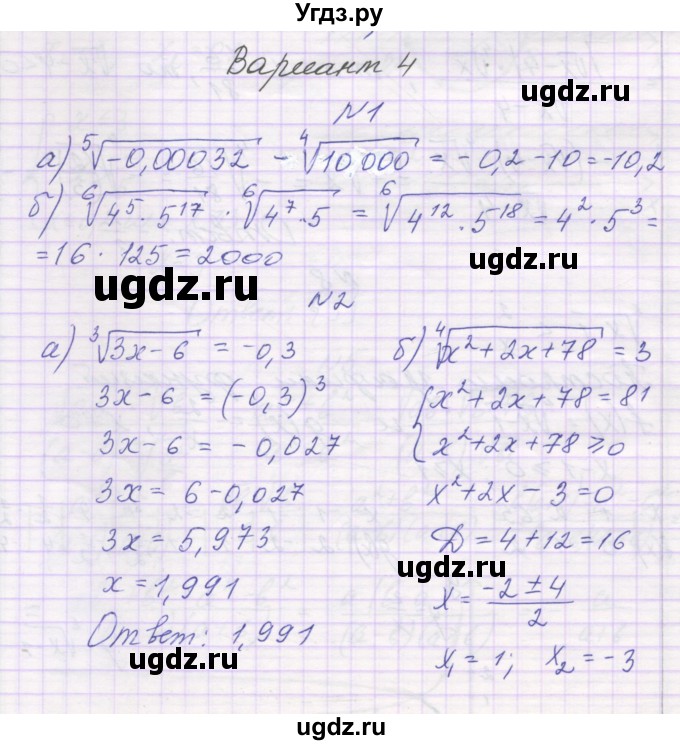 Угдз.ру
Вариант 4
N1
а) ⁵√(-0,00032) - ⁴√(10 000) = -0,2 - 10 = -10,2
б) ⁶√(4⁵ · 5¹⁷) · ⁶√(4⁷ · 5) = ⁶√(4¹² · 5¹⁸) = 4² · 5³ =
ugdz.ru
ugdz.ru
= 16 · 125 = 2000
ugdz.ru
N2
а) ³√(3x - 6) = -0,3
3x - 6 = (-0,3)³
3x - 6 = -0,027
3x = 6 - 0,027
3x = 5,973
x = 1,991
Ответ: 1,991
б) ⁴√(x² + 2x + 78) = 3
{ x² + 2x + 78 = 81
x² + 2x + 78 ≥ 0
x² + 2x - 3 = 0
D = 4 + 12 = 16
ugdz.ru
x = (-2 ± 4)/2
x₁ = 1; x₂ = -3
ugdz.ru
ugdz.ru
ugdz.ru